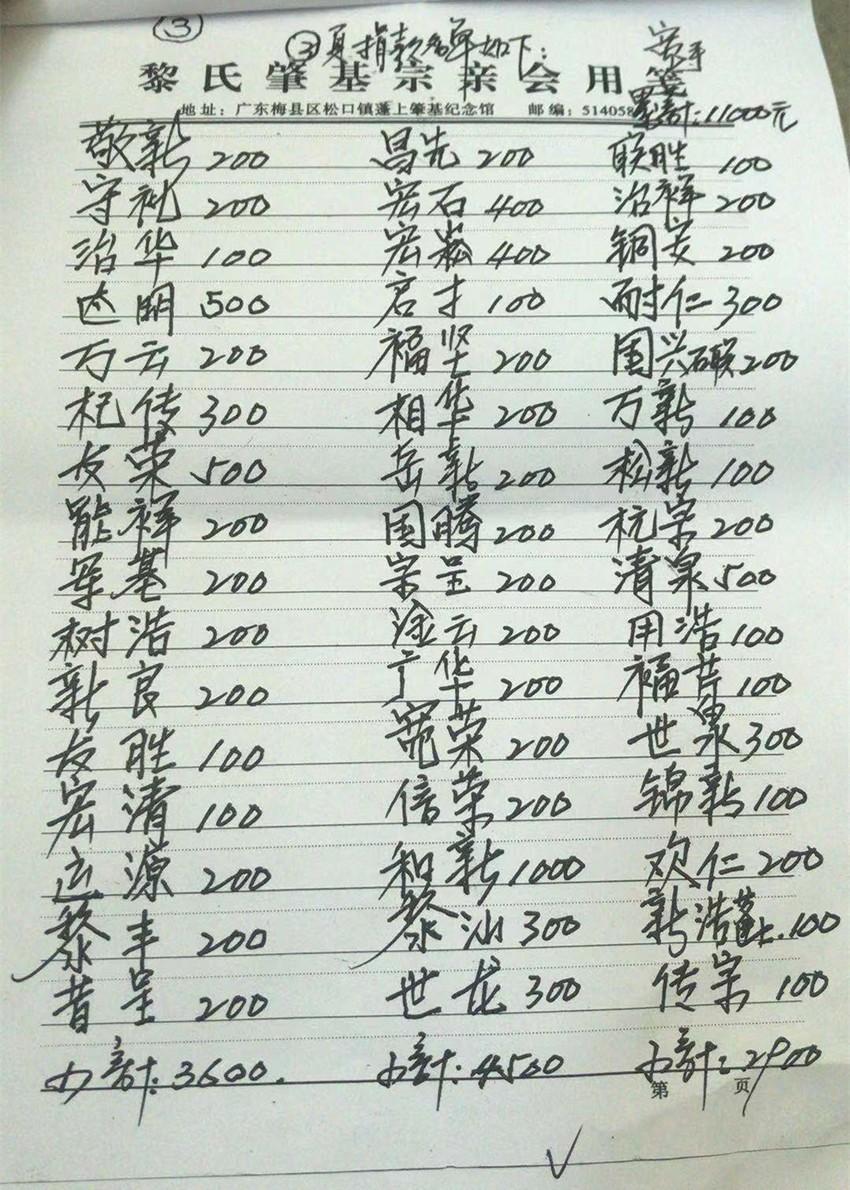 ③
③夏捐款名单如下:
黎氏肇基宗亲会用笺
地址：广东梅县区松口镇蓬上肇基纪念馆 邮编：514058
累计:11000元
敬新 200 昌先 200 联胜 100
守礼 200 宏石 400 治祥 200
治华 100 宏崧 400 铜安 200
达明 500 启才 100 耐仁 300
万云 200 福坚 200 国兴石联 200
杞传 300 相华 200 万新 100
友荣 500 岳新 200 松新 100
能祥 200 国腾 200 杭荣 200
军基 200 宗呈 200 清泉 500
树浩 200 淦云 200 用浩 100
新良 200 广华 200 福昔 100
友胜 100 宽荣 200 世泉 300
宏清 100 信荣 200 锦新 100
运源 200 和新 1000 欢仁 200
黎丰 200 黎汕 300 新浩 100
昔呈 200 世龙 300 传宗 100
小计:3600. 小计:4500 小计:2900
第 页